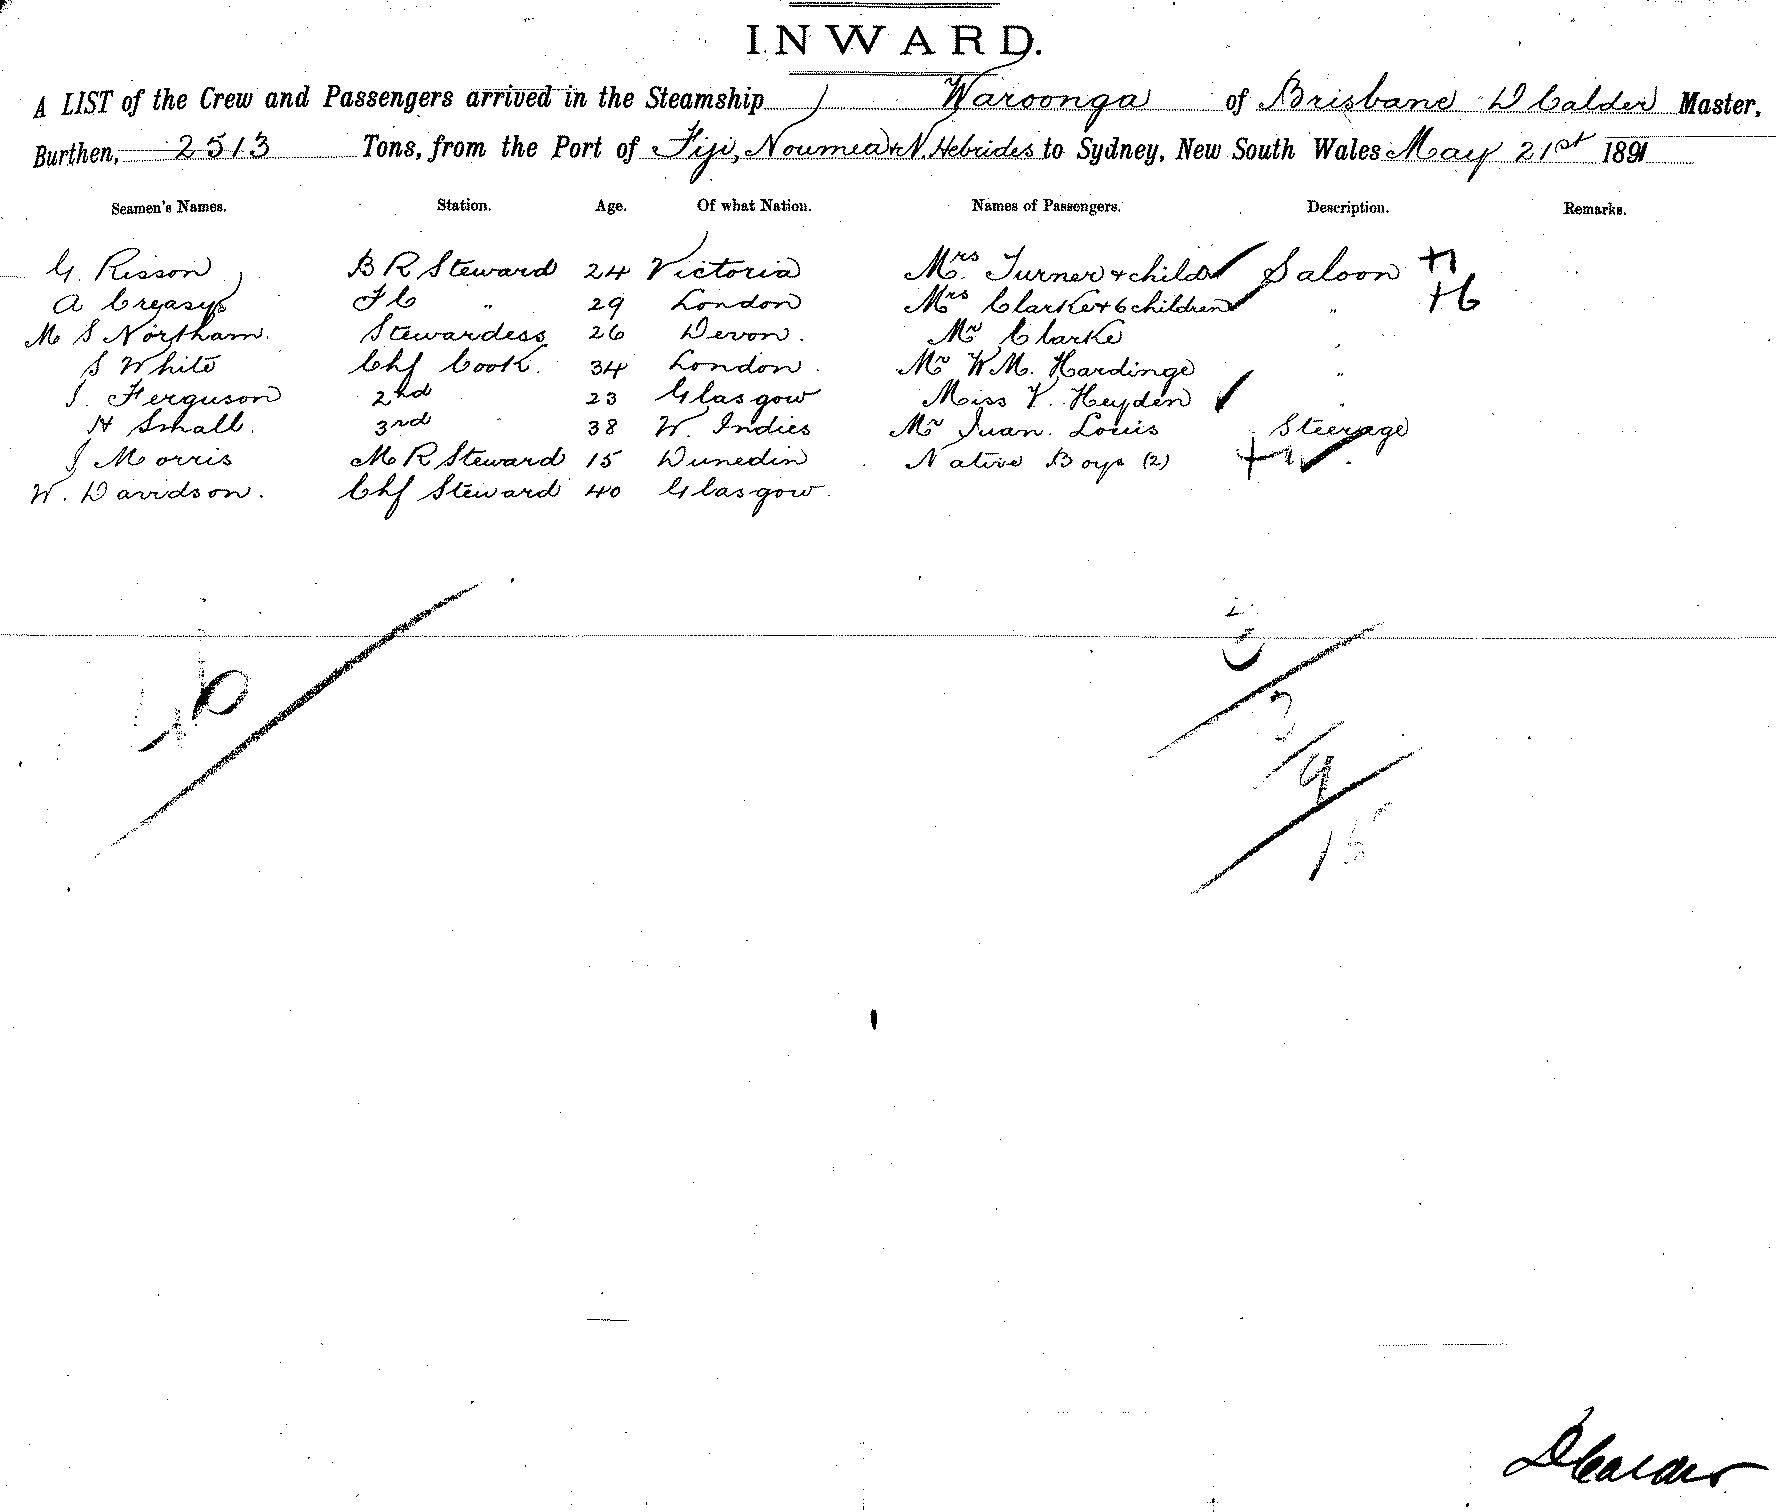 INWARD.
A LIST of the Crew and Passengers arrived in the Steamship Waroonga of Brisbane D Calder Master,
Burthen, 2513 Tons, from the Port of Fiji, Noumea & N. Hebrides to Sydney, New South Wales May 21st 1891
Seamen's Names. Station. Age. Of what Nation. Names of Passengers. Description. Remarks.
G. Risson B R Steward 24 Victoria Mrs. Turner & child Saloon +1
A Creasy F C " 29 London Mrs Clarke & 6 children " +6
M S Northam. Stewardess 26 Devon. Mr Clarke "
S White Chf Cook. 34 London. Mr W.M. Hardinge "
J. Ferguson 2nd " 23 Glasgow Miss V. Heyden "
H Small. 3rd " 38 W. Indies Mr Juan. Louis Steerage
J Morris M R Steward 15 Dunedin Native Boys (2) +1
W. Davidson. Chf Steward 40 Glasgow.
3
9
15
D Calder